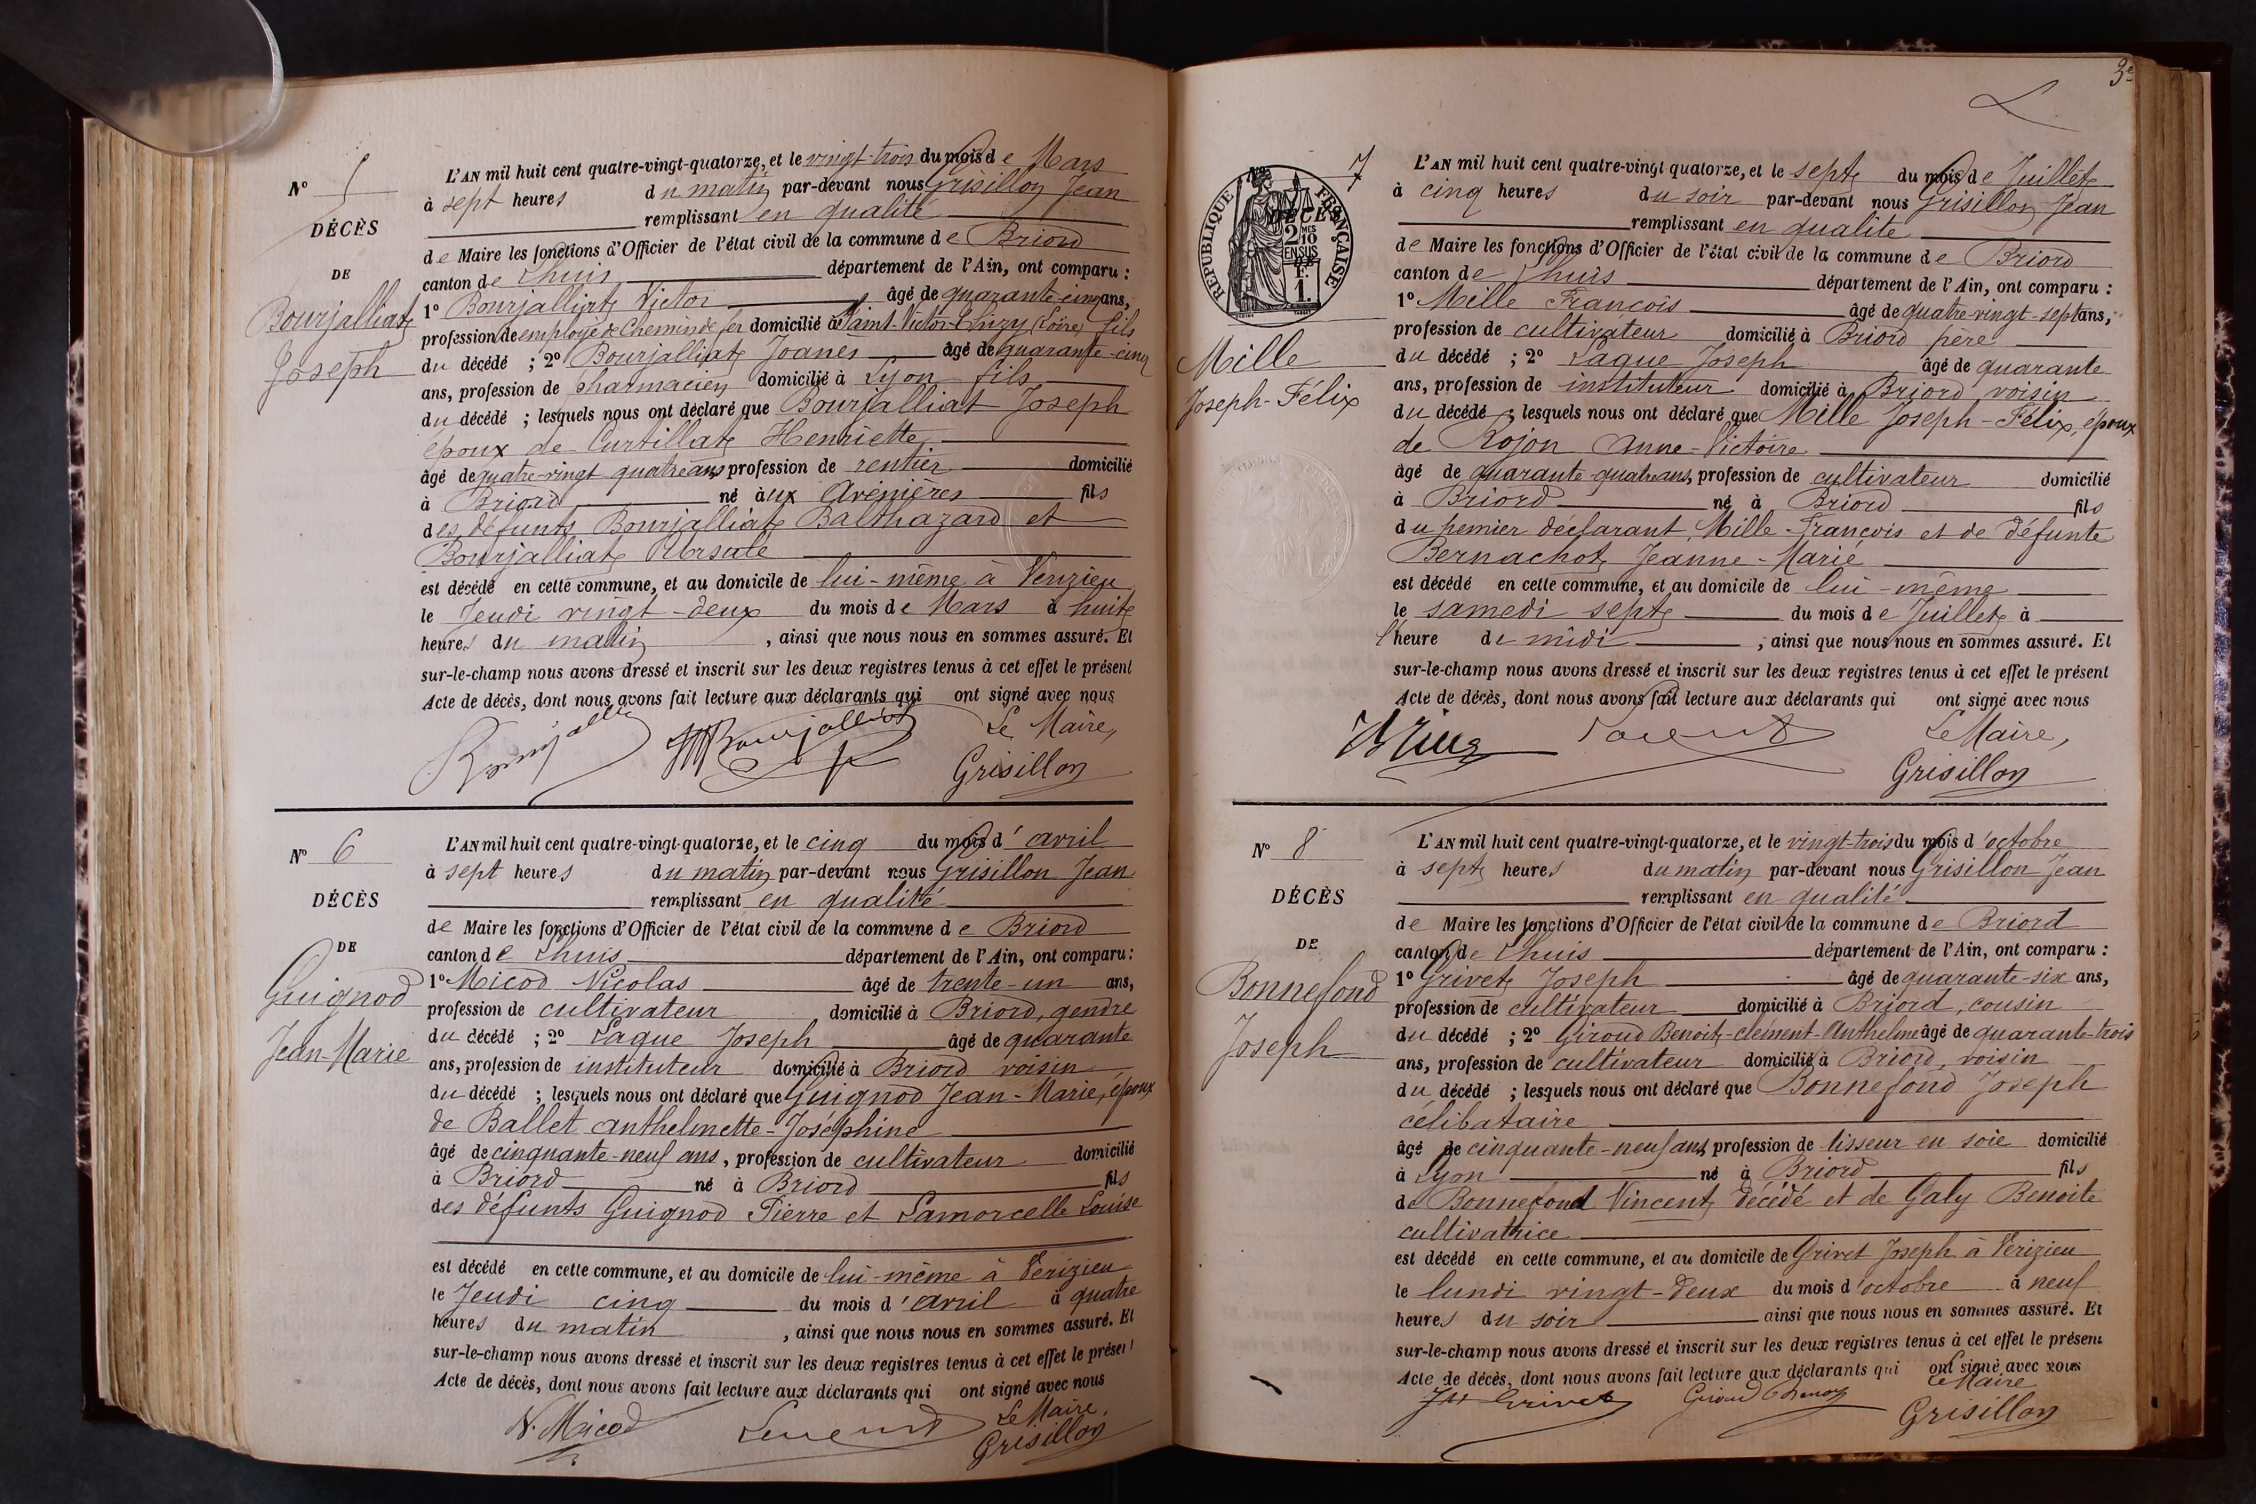 N° 5
DÉCÈS
DE
Bourjalliat
Joseph
L'AN mil huit cent quatre-vingt-quatorze, et le vingt-trois du mois de Mars
à sept heures du matin par-devant nous Grisillon Jean
remplissant en qualité
de Maire les fonctions d'Officier de l'état civil de la commune de Briord
canton de Lhuis département de l'Ain, ont comparu :
1° Bourjalliat Victor âgé de quarante-cinq ans,
profession de employé de Chemin de fer domicilié à Saint-Victor-Thizy (Loire) fils
du décédé ; 2° Bourjalliat Joanes âgé de quarante-cinq
ans, profession de pharmacien domicilié à Lyon fils
du décédé ; lesquels nous ont déclaré que Bourjalliat Joseph
époux de Curtillat Henriette
âgé de quatre-vingt quatre ans profession de rentier domicilié
à Briord né aux Avenières fils
des défunts Bourjalliat Balthazard et
Bourjalliat Ursule
est décédé en cette commune, et au domicile de lui-même à Verizieu
le Jeudi vingt-deux du mois de Mars à huit
heures du matin, ainsi que nous nous en sommes assuré. Et
sur-le-champ nous avons dressé et inscrit sur les deux registres tenus à cet effet le présent
Acte de décès, dont nous avons fait lecture aux déclarants qui ont signé avec nous
Bourjalliat Le Maire,
Grisillon
N° 6
DÉCÈS
DE
Guignod
Jean-Marie
L'AN mil huit cent quatre-vingt-quatorze, et le cinq du mois d'avril
à sept heures du matin par-devant nous Grisillon Jean
remplissant en qualité
de Maire les fonctions d'Officier de l'état civil de la commune de Briord
canton de Lhuis département de l'Ain, ont comparu :
1° Micod Nicolas âgé de trente-un ans,
profession de cultivateur domicilié à Briord, gendre
du décédé ; 2° Laque Joseph âgé de quarante
ans, profession de instituteur domicilié à Briord voisin
du décédé ; lesquels nous ont déclaré que Guignod Jean-Marie, époux
de Ballet Anthelmette-Joséphine
âgé de cinquante-neuf ans, profession de cultivateur domicilié
à Briord né à Briord fils
des défunts Guignod Pierre et Lamorcelle Louise
est décédé en cette commune, et au domicile de lui-même à Verizieu
le Jeudi cinq du mois d'avril à quatre
heures du matin, ainsi que nous nous en sommes assuré. Et
sur-le-champ nous avons dressé et inscrit sur les deux registres tenus à cet effet le présent
Acte de décès, dont nous avons fait lecture aux déclarants qui ont signé avec nous
N. Micod Le Maire,
Grisillon
3e
7
RÉPUBLIQUE FRANÇAISE
Mille
Joseph-Félix
L'AN mil huit cent quatre-vingt quatorze, et le sept du mois de Juillet
à cinq heures du soir par-devant nous Grisillon Jean
remplissant en qualité
de Maire les fonctions d'Officier de l'état civil de la commune de Briord
canton de Lhuis département de l'Ain, ont comparu :
1° Mille François âgé de quatre-vingt-sept ans,
profession de cultivateur domicilié à Briord père
du décédé ; 2° Laque Joseph âgé de quarante
ans, profession de instituteur domicilié à Briord voisin
du décédé ; lesquels nous ont déclaré que Mille Joseph-Félix, époux
de Rojon Anne-Victoire
âgé de quarante-quatre ans, profession de cultivateur domicilié
à Briord né à Briord fils
du premier déclarant, Mille-François et de défunte
Bernachot Jeanne-Marie
est décédé en cette commune, et au domicile de lui-même
le samedi sept du mois de Juillet à
l'heure de midi, ainsi que nous nous en sommes assuré. Et
sur-le-champ nous avons dressé et inscrit sur les deux registres tenus à cet effet le présent
Acte de décès, dont nous avons fait lecture aux déclarants qui ont signé avec nous
Le Maire,
Grisillon
N° 8
DÉCÈS
DE
Bonnefond
Joseph
L'AN mil huit cent quatre-vingt-quatorze, et le vingt-trois du mois d'octobre
à sept heures du matin par-devant nous Grisillon Jean
remplissant en qualité
de Maire les fonctions d'Officier de l'état civil de la commune de Briord
canton de Lhuis département de l'Ain, ont comparu :
1° Grivet Joseph âgé de quarante-six ans,
profession de cultivateur domicilié à Briord, cousin
du décédé ; 2° Giroud Benoit-Clément-Anthelme âgé de quarante-trois
ans, profession de cultivateur domicilié à Briord, voisin
du décédé ; lesquels nous ont déclaré que Bonnefond Joseph
célibataire
âgé de cinquante-neuf ans, profession de tisseur en soie domicilié
à Lyon né à Briord fils
de Bonnefond Vincent décédé et de Galy Benoite
cultivatrice
est décédé en cette commune, et au domicile de Grivet Joseph à Verizieu
le lundi vingt-deux du mois d'octobre à neuf
heures du soir ainsi que nous nous en sommes assuré. Et
sur-le-champ nous avons dressé et inscrit sur les deux registres tenus à cet effet le présent
Acte de décès, dont nous avons fait lecture aux déclarants qui ont signé avec nous
Grivet Le Maire
Grisillon